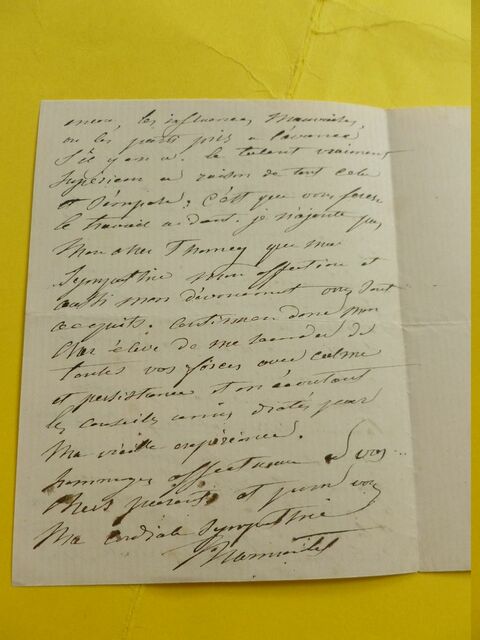 encore, les influences mauvaises,
ou les partis pris à l'avance
S'il y en a. le talent vraiment
Supérieur a raison de tout cela
et s'impose; c'est que vous ferez
le travail aidant. je n'ajoute pas
Mon cher Thomey que ma
Sympathie mon affection et
aussi mon dévouement vous sont
acquits. Continuez donc mon
cher élève de me seconder de
toutes vos forces avec calme
et persistance et en écoutant
les conseils amis dictés par
Ma vieille expérience.
hommages affectueux à vos
chers parents et pour vous
Ma cordiale Sympathie
Marmontel